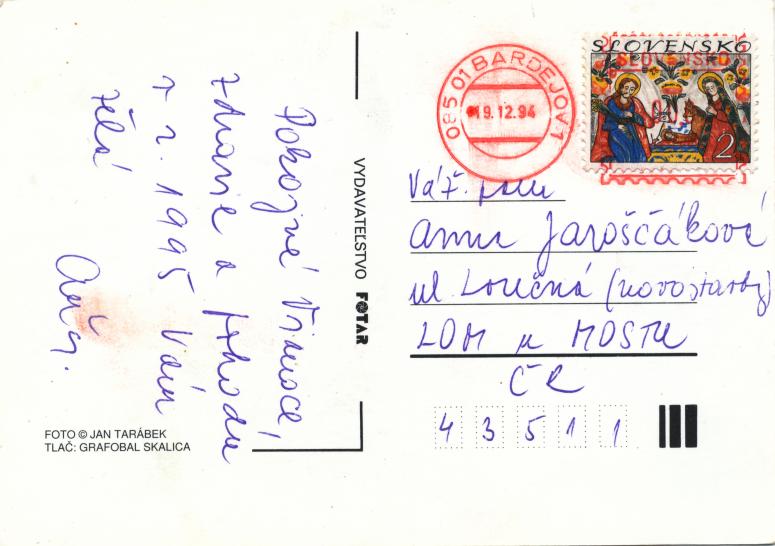 Pokojné Vianoce,
zdravie a pohodu
v r. 1995 Vám
želá
VYDAVATEĽSTVO FOTAR
FOTO © JAN TARÁBEK
TLAČ: GRAFOBAL SKALICA
085 01 BARDEJOV 1
19.12.94
SLOVENSKO
2
Váž. pani
Anna Jaroščáková
ul. Loučná (novostavby)
LOM u MOSTU
ČR
43511